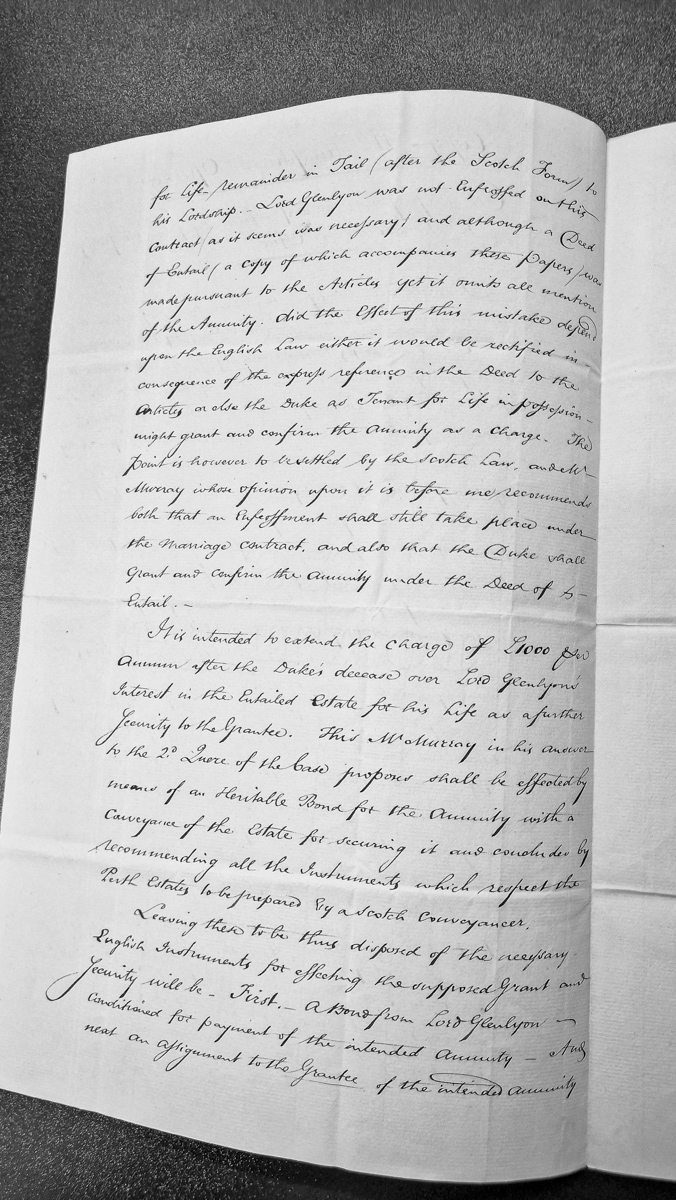 for Life remainder in Tail (after the Scotch Form) to
his Lordship. – Lord Glenlyon was not Enfeoffed on this
Contract (as it seems was necessary) and although a Deed
of Entail (a copy of which accompanies these Papers) was
made pursuant to the Articles yet it omits all mention
of the Annuity. did the Effect of this mistake depend
upon the English Law either it would be rectified in
consequence of the express reference in the Deed to the
Articles or else the Duke as Tenant for Life in possession –
might grant and confirm the Annuity as a Charge. The
Point is however to be settled by the Scotch Law, and Mr
Murray whose opinion upon it is before me recommends
both that an Enfeoffment shall still take place under
the Marriage Contract, and also that the Duke shall
Grant and confirm the Annuity under the Deed of
Entail. –
It is intended to extend the Charge of £1000 per
Annum after the Duke's decease over Lord Glenlyon's
Interest in the Entailed Estate for his Life as a further
Security to the Grantee. This Mr Murray in his answer
to the 2d Quere of the Case proposes shall be effected by
means of an Heritable Bond for the Annuity with a
Conveyance of the Estate for securing it and concludes by
recommending all the Instruments which respect the
Perth Estates to be prepared by a Scotch Conveyancer.
Leaving these to be thus disposed of the necessary
English Instruments for effecting the supposed Grant and
Security will be – First. – A Bond from Lord Glenlyon –
Conditioned for payment of the intended Annuity – And
next an assignment to the Grantee of the intended Annuity